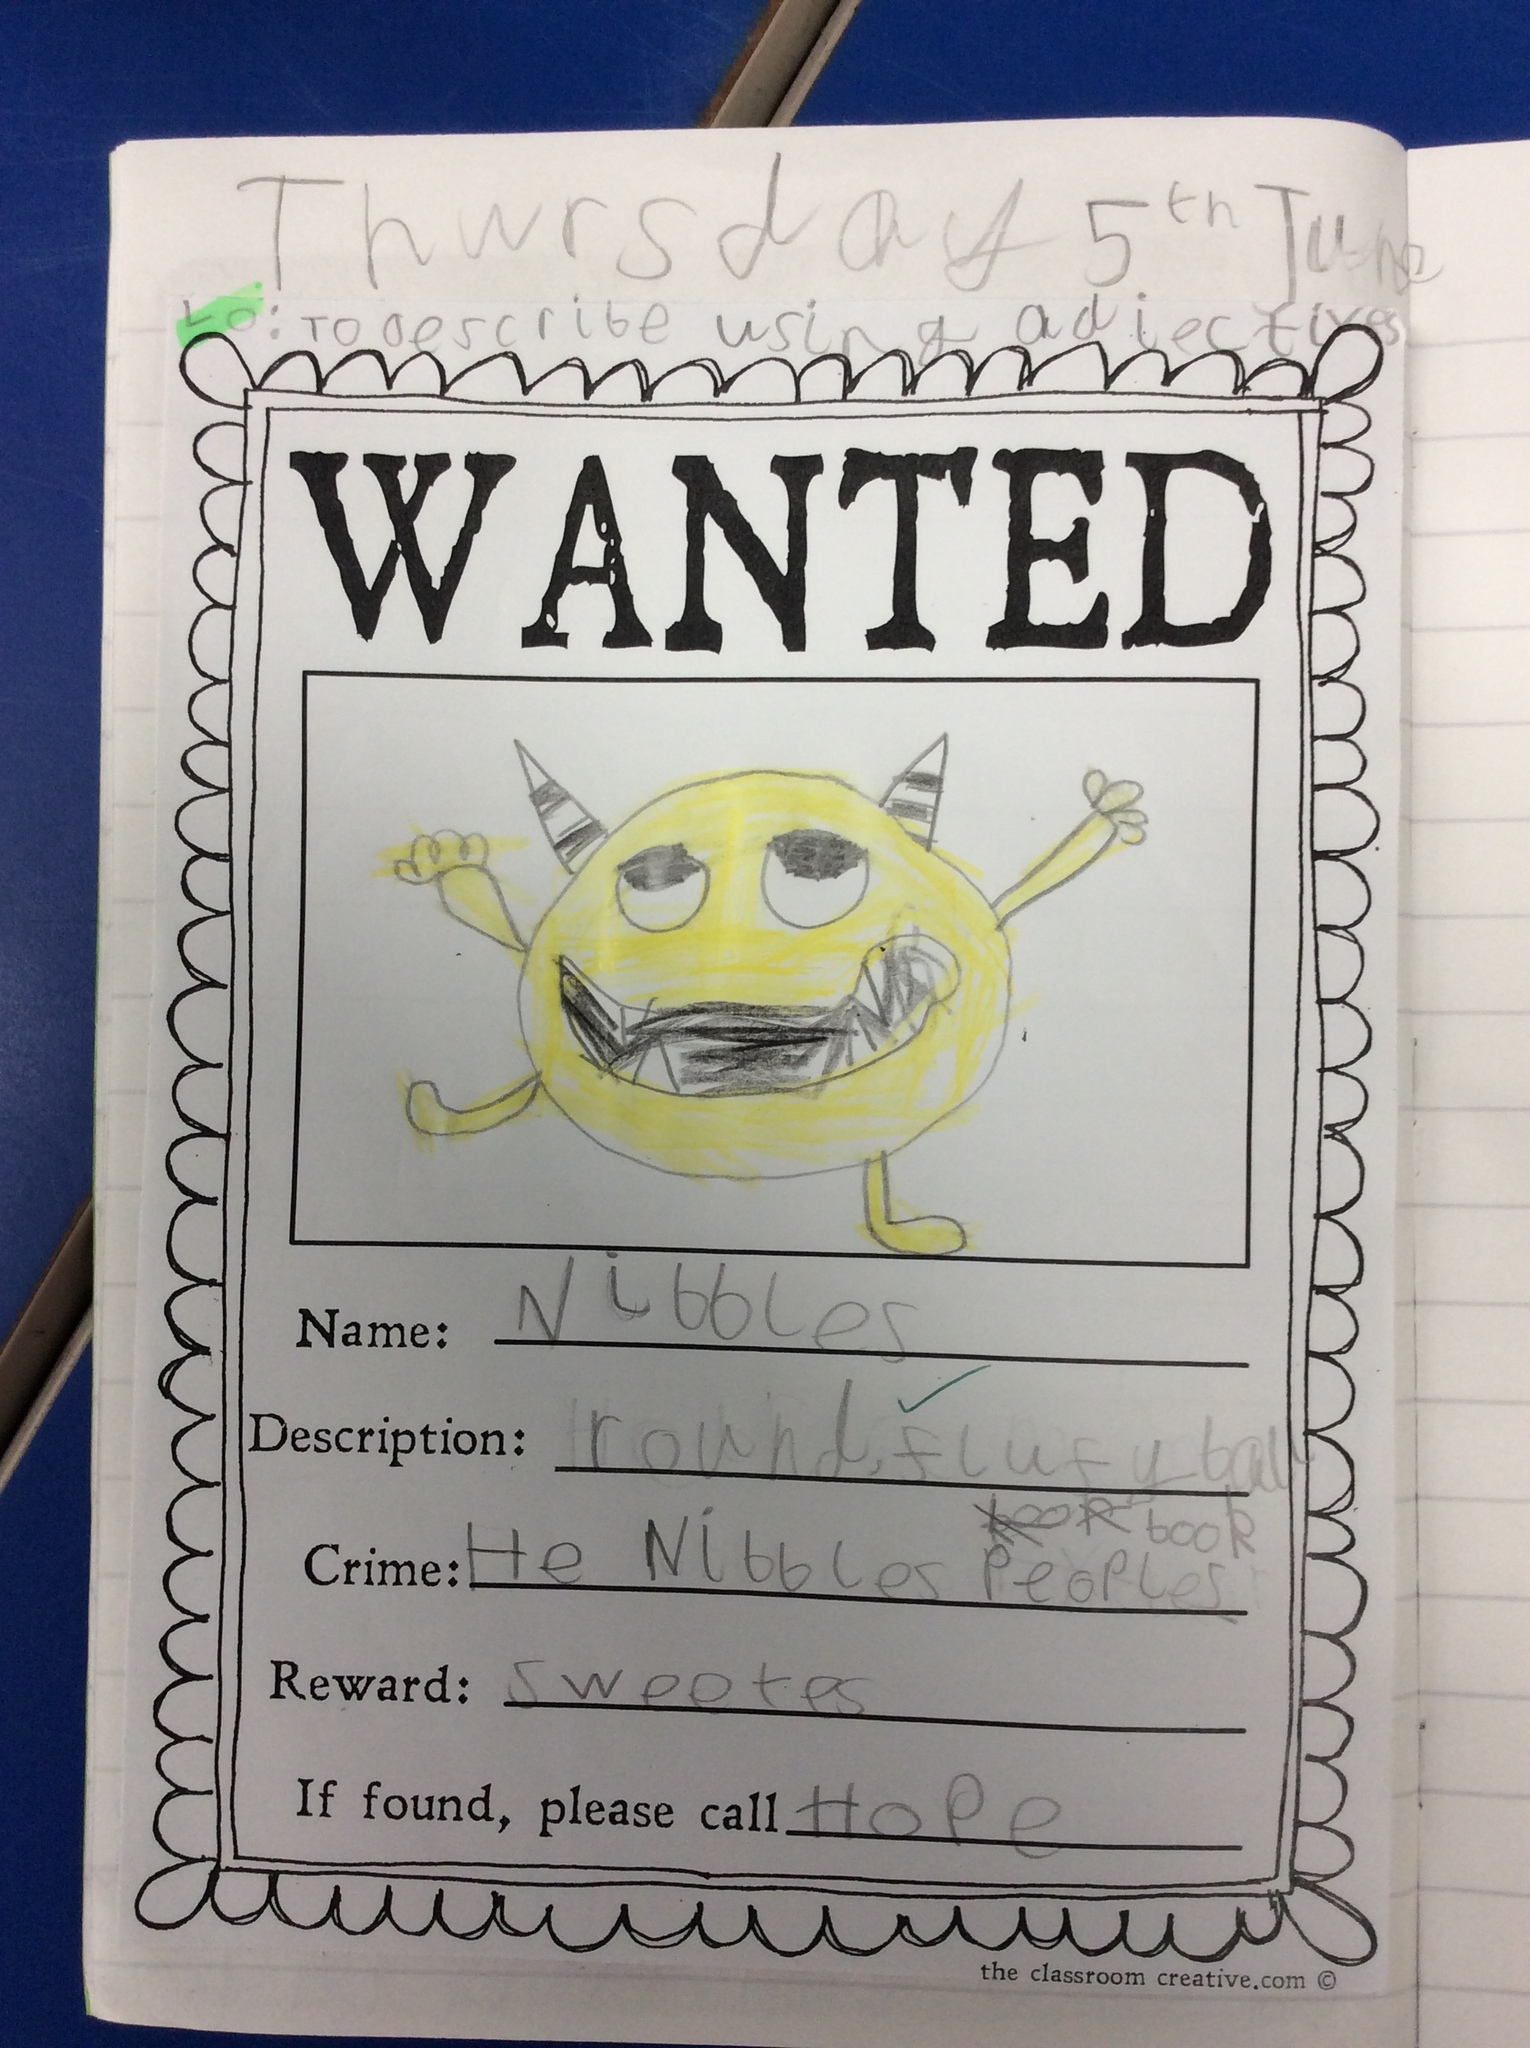 Thursday 5th June
LO: To Describe using adjectives
WANTED
Name: Nibbles
Description: round, flufy ball
book book
Crime: He Nibbles Peoples
Reward: sweetes
If found, please call Hope
the classroom creative.com ©